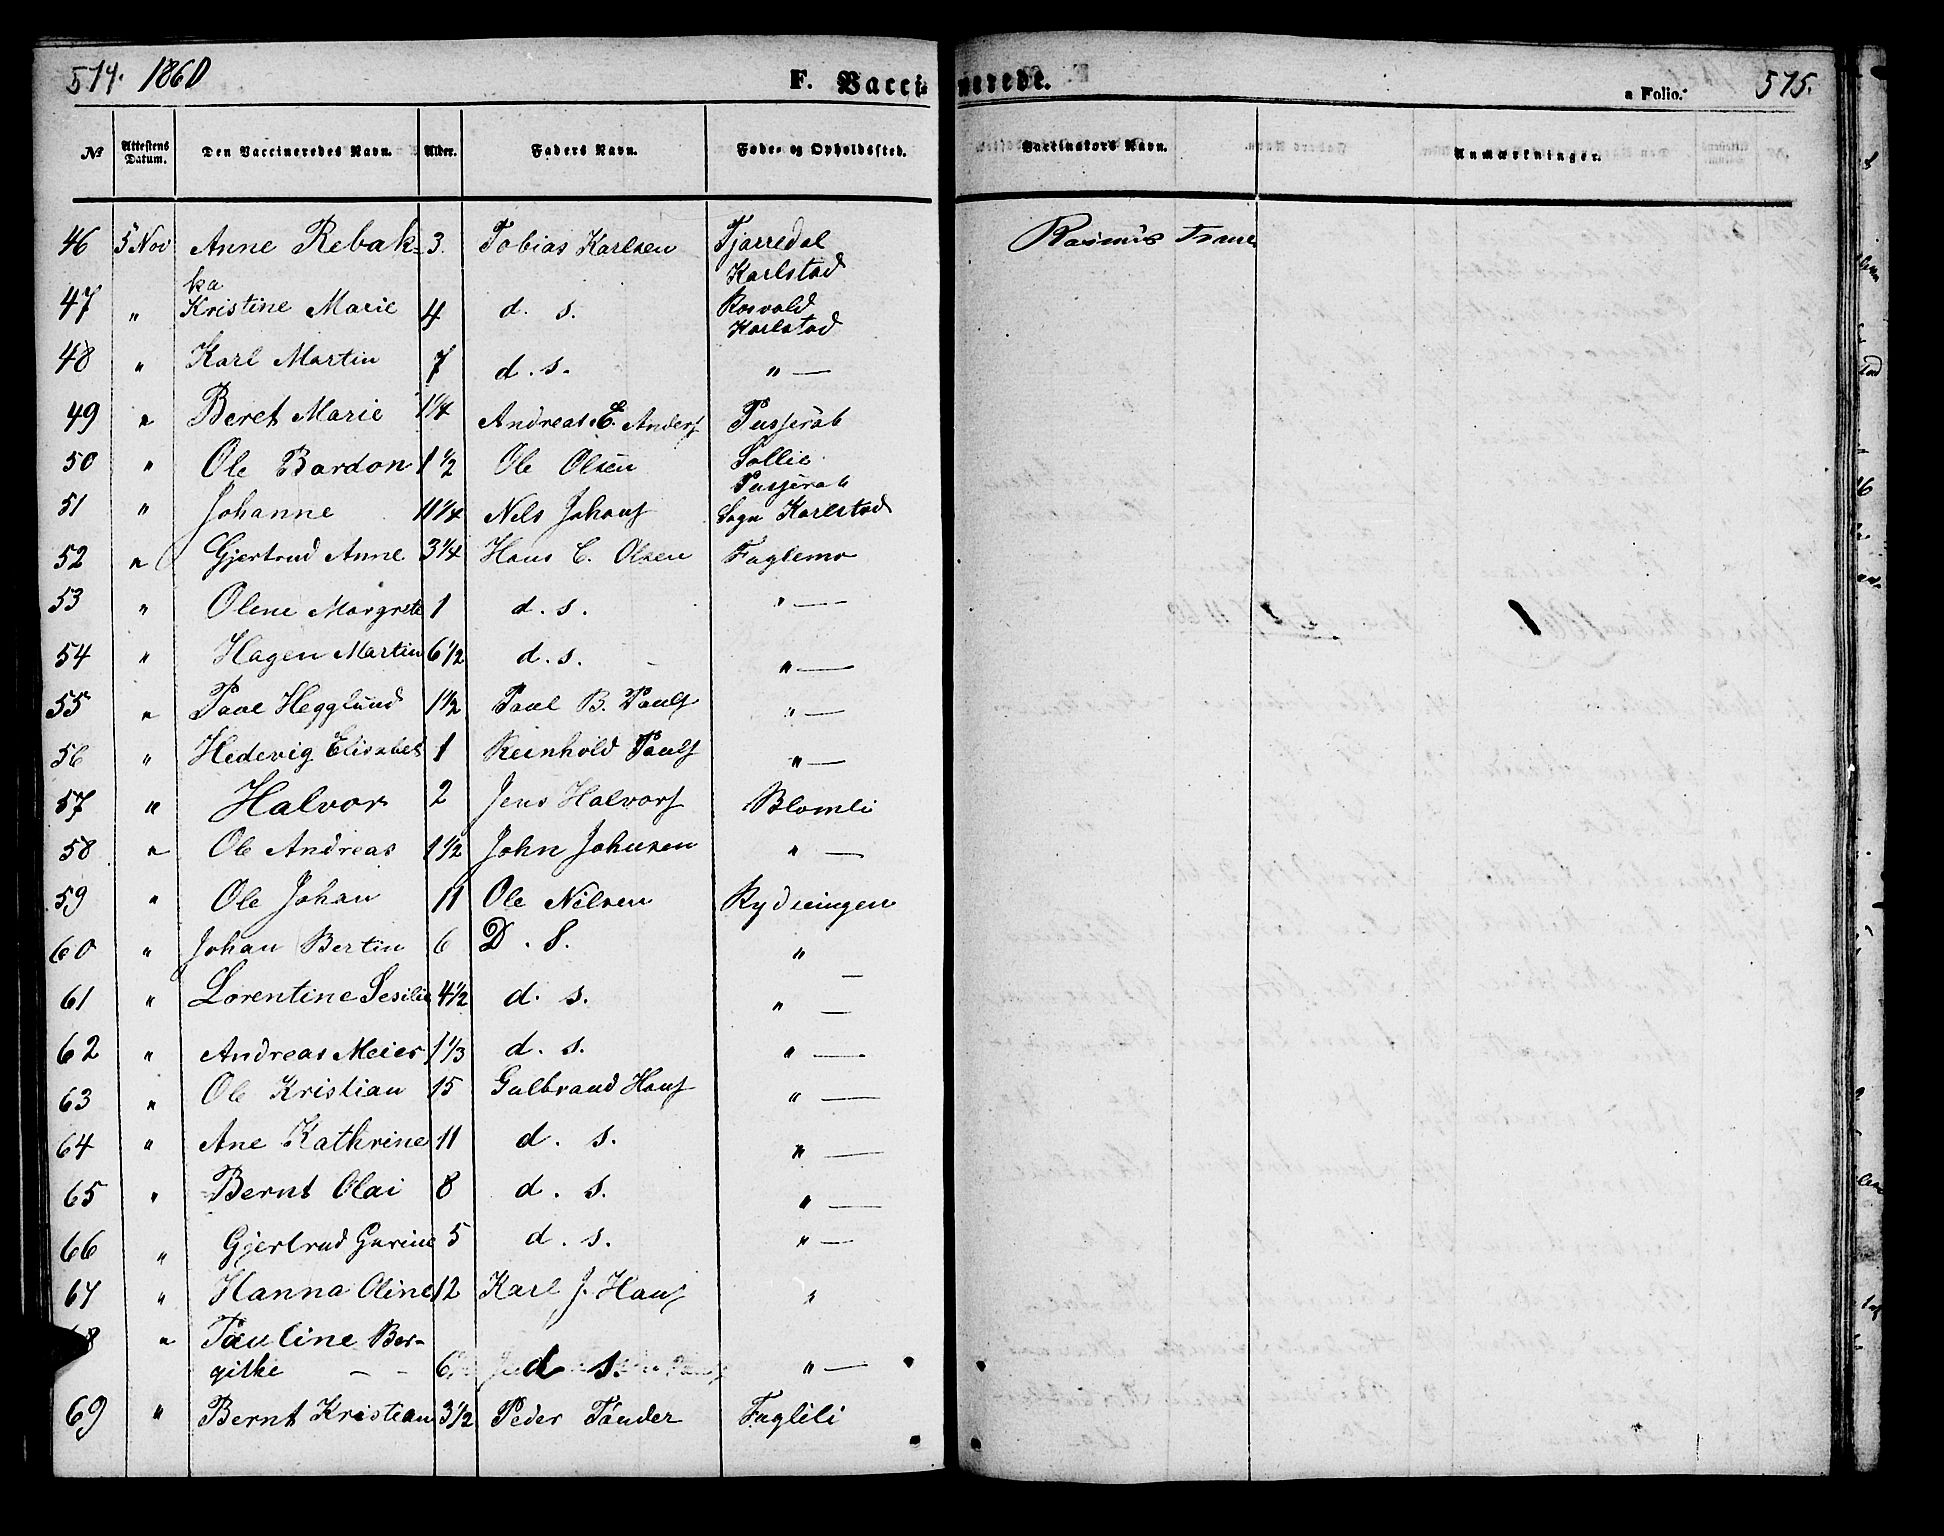 574. 1860 F. Vacci- nerede. a Folio. 575.
№ Attestens Datum. Den Vaccineredes Navn. Alder. Faders Navn. Føde- og Opholdssted. Vaccinators Navn. Anmærkninger.
46 5 Nov Anne Rebak- 3. Tobias Karlsen Fjørredal Rasmus
ka Karlstad
47 " Kristine Marie 4 d. s. Rosvald
Karlstad
48 " Karl Martin 7 d. s. " —
49 " Beret Marie 1 1/4 Andreas E. Anders
50 " Ole Bardon 1 1/2 Ole Olsen Sollie
51 " Johanne 11 1/4 Nels Johans Sogn Karlstad
52 " Gjertrud Anne 3 1/4 Hans C. Olsen Faglemo
53 " Olene Margrete 1 d. s. " —
54 " Hagen Martin 6 1/2 d. s. " —
55 " Paul Hegglund 1 1/2 Paul B. Pauls " —
56 " Hedevig Elisabet 1 Reinhold Pauls " —
57 " Halvor 2 Jens Halvors Blomli
58 " Ole Andreas 1 1/2 John Johnsen " —
59 " Ole Johan 11 Ole Nilsen Rydningen
60 " Johan Bertin 6 D. S. " —
61 " Lorentine Sesilie 4 1/2 d. s. " —
62 " Andreas Meier 1 1/3 d. s. " —
63 " Ole Kristian 15 Gulbrand Hans " —
64 " Ane Kathrine 11 d. s. " —
65 " Bernt Olai 8 d. s. " —
66 " Gjertrud Gurine 5 d. s. " —
67 " Hanna Oline 12 Karl J. Hans "
68 " Pauline Ber-
githe — - 6 d s. " —
69 " Bernt Kristian 3 1/2 Peder Tønder Faglili